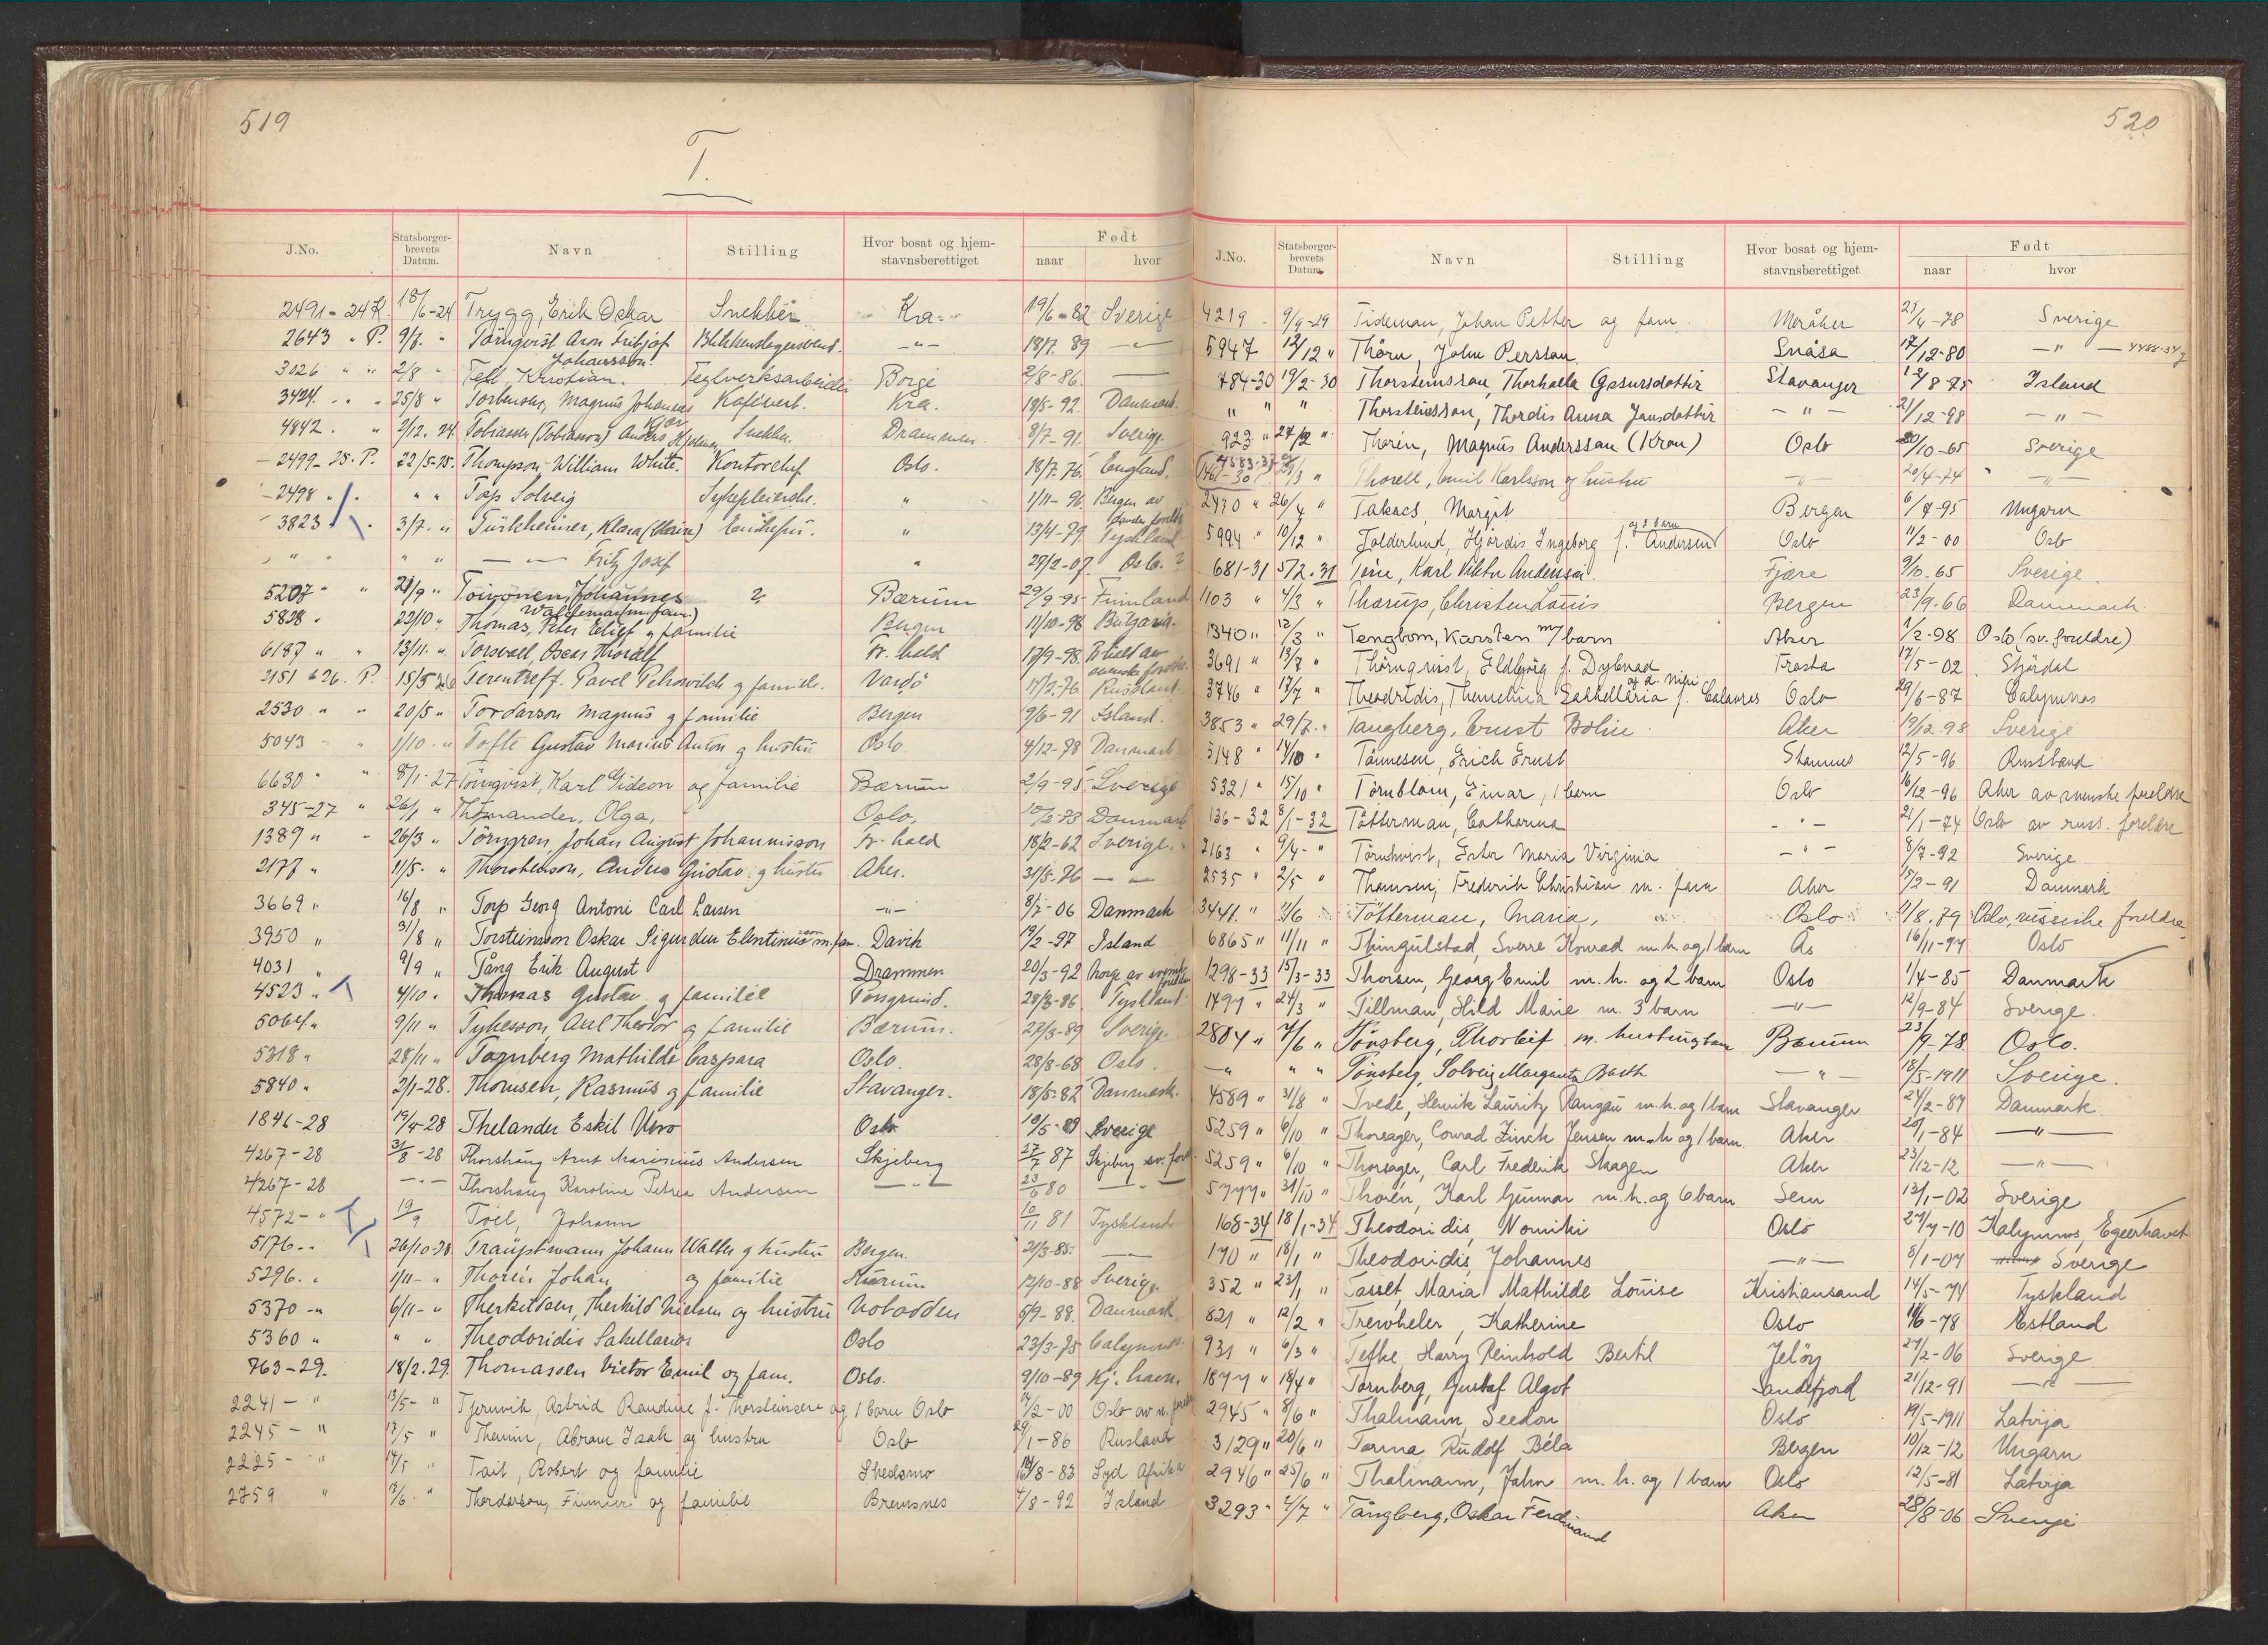 519
T.
J.No. Statsborger-brevets Datum. Navn Stilling Hvor bosat og hjem-stavnsberettiget Født naar hvor
2491-24 R. 18/6-24 Trygg, Erik Oskar Snekker Kra. 19/6-82 Sverige
2643 " P. 9/7. " Törnqvist Aron Fritjof Blikkenslagersvend. -"- 18/7. 89 -"-
Johansson
3026 " " 2/8 " Tell, Kristian. Teglverksarbeider Borge 2/8-86.
3424. " " 25/8 " Torbensen, Magnus Johannes Kafévert. Kra. 19/5-92. Danmark.
4842. " 2/12. 24 Tobiassen (Tobiasson) Anders Snekker. Drammen. 8/7-91. Sverige
2499-25. P. 22/5-25. Thompson William White. Kontorchef Oslo. 18/7. 76. England.
2498 " " " Top Solveig Sykepleierske. " 1/11-96. Bergen av danske foreldre
3823 " 3/7. " Türkheimer, Klara (Clären) Enkefru. " 13/4-79 Tyskland
" " " " -"- Fritz Josef " 29/2-07. Oslo. ?
5207 " " 21/9 " Toivonen, Johannes ? Bærum 29/9-95 Finnland
Waldemar (m. fam.)
5828 " 22/10 " Thomas, Peter Elief og familie Bergen 11/10-98 Bulgaria.
6187 " " 13/11. " Torsvall, Oscar Thoralf Fr. hald 17/9-98. Fr. hald av svenske foreldre.
2151 " 26. P. 15/5 26 Terentieff. Pavel Petrowitch og familie. Vardö 17/2-76 Russland.
2530 " " 20/5 " Tordarson Magnus og familie Bergen 9/6-91 Island.
5043 " 1/10. " Tofte Gustav Marius Anton og hustru Oslo. 4/12-78 Danmark
6630 " " 8/1-27 Törnqvist, Karl Gideon og familie Bærum 2/9-95 Sverige
345-27 " 26/1 " Thomander, Olga, Oslo, Danmark
1389 " " 26/3 " Törngren, Johan August Johannisson Fr. hald 18/2-62 Sverige.
2177 " 11/5. " Thorstenson, Anders Gustav. og hustru Aker. 31/5-76 -"-
3669 " 16/8 " Torp Georg Antoni Carl Larsen -"- 8/7-06 Danmark
3950 " 31/8 " Torsteinson Oskar Sigurdur Elentinus m. fam. Davik 19/2-97 Island
4031 " 9/9 " Tång Erik August Drammen 20/3-92 Norge av svenske foreldre
4523 " 4/10 " Thomas Gustav og familie Porsgrund. 28/3-86 Tyskland
5064 " 9/11 " Tykesson, Axel Theodor og familie Bærum. 22/3-89 Sverige.
5318 " 28/11 " Tornberg Mathilde Caspara Oslo. 28/8-68 Oslo.
5840 " 2/1-28. Thomsen, Rasmus og familie Stavanger. 18/5-82 Danmark.
1846-28 19/4-28 Thelander Eskil Uno Oslo 19/5-89 Sverige
4267-28 31/8-28 Thorshaug Arnt Marinius Andersen Skjeberg 27/7 87 Skjeberg sv. for.
4267-28 -"- Thorshaug Karoline Petrea Andersen -"- 23/6 80 -"-
4572-" 19/9 Toel, Johann 10/11 81 Tyskland
5176 " 26/10-28 Traüptmann Johann Walter og hustru Bergen. 21/3-85.
5296 " 1/11-" Thorén Johan og familie 12/10-88 Sverige.
5370-" 6/11-" Therkildsen, Therkild Nielsen og hustru Notodden 5/9-88. Danmark
5360 " " " Theodoridis Sakellarios Oslo 23/3-75 Calymnos.
763-29. 18/2. 29. Thomassen Victor Emil og fam. Oslo. 9/10-89 Kj. havn.
2241-" 13/5-" Tjernvik, Astrid Randine f. Thorsteinsen og 1 barn Oslo 17/2-00 Oslo av n. foreldre
2245-" 13/5 " Themin, Abram Isak og hustru Oslo 29/1-86 Rusland
2225-" 14/5 " Tait, Robert og familie Skedsmo 14/8-83 Syd Afrika
2759 " 13/6. " Thordarson, Finnur og familie Bremsnes 4/8-92 Island
520
J.No. Statsborger-brevets Datum. Navn Stilling Hvor bosat og hjem-stavnsberettiget Født naar hvor
4219 9/9-29 Tideman, Johan Petter og fam. Meråker 25/4-78 Sverige
5947 12/12 " Thörn, John Persson Snåsa 17/12-80 -"- 4488-34
784-30 19/2-30 Thorsteinsson, Thorhalla Gissursdottir Stavanger 12/8-75 Island
" " " Thorsteinsson, Thordis Anna Jonsdottir -"- 21/12-98 -"-
923 " 27/2 " Thorén, Magnus Andersson (Kron) Oslo 20/10-65 Sverige
4583-37
1461-30 29/3 " Thorell, Emil Karlsson og hustru -"- 20/4-74 -"-
2470 " 26/4 " Takacs, Margit Bergen 6/7-95 Ungarn
og 2 barn
5994 " 10/12 " Tolderlund, Hjördis Ingeborg f. Andersen Oslo 11/2-00 Oslo
681-31 5/2. 31 Tene, Karl Viktor Andersson. Fjære 9/10. 65 Sverige
1103 " 4/3 " Thorup, Christen Louis Bergen 23/9-66 Danmark.
1340 " 12/3 " Tengbom, Karsten m/ barn Aker 1/2-98 Oslo (sv. foreldre)
3691 " 13/7 " Thörnqvist, Eldbjörg f. Dybvad Frosta 17/5-02 Stjördal
3746 " 17/7 " Theodridis, Themelina Sakkellaria f. Calavros Oslo 29/6-87 Calymnos
3853 " 29/7 " Tangberg, Ernst Bolin Aker 19/12. 98 Sverige
5148 " 14/10 " Tönnesen, Erich Ernst Stamnes 12/5-96 Russland
5321 " 15/10 " Törnblom, Einar, 1 barn Oslo 16/12-96 Aker av svenske foreldre
136-32 8/1-32 Tötterman, Catharina -"- 21/1-74 Oslo av russ. foreldre
2163 " 9/4-" Törnkvist, Ester Maria Virginia -"- 8/7-92 Sverige
2535 " 2/5 " Thomsen, Frederik Christian m. fam Aker 15/2-91 Danmark
3441. " 11/6 Tötterman, Maria, Oslo 11/8. 79 Oslo, russiske foreldre
6865 " 11/11 " Thingulstad, Sverre Konrad m.h. og 1 barn Ås 16/11-94 Oslo
1298-33 15/3-33 Thorsen, Georg Emil m. h. og 2 barn Oslo 1/4-85 Danmark
1497 " 24/3 " Tillman, Hild Marie m. 3 barn -"- 12/9-84 Sverige.
2804 " 7/6 " Tönsberg, Thorleif m. hustru og barn Bærum 23/9-78 Oslo.
-" " " Tönsberg, Solveig Margareta Barth -"- 18/5-1911 Sverige.
4589 " 31/8 " Tvede, Henrik Lauritz Rangau m.h. og 1 barn Stavanger 24/2-87 Danmark.
5259 " 6/10 " Thorsager, Conrad Zinck Jensen m.h og 1 barn. Aker 20/1-84 -"-
5259 " 6/10 " Thorsager, Carl Frederik Skagen Aker 23/12-12 -"-
5777 " 31/10 " Thorén, Karl Gunnar m.h. og 6 barn Sem 13/1-02 Sverige
168-34 18/1-34 Theodoridis, Nomiki Oslo 27/7-10 Kalymnos, Egeerhavet
170 " 18/1 " Theodoridis, Johannes -"- 8/1-07 Sverige
352 " 23/1 " Tasset, Maria Mathilde Louise Kristiansand 14/5-74 Tyskland
821 " 12/2 " Trewheler, Katherine Oslo 11/6-78 Estland
931 " 6/3 " Tefke Harry Reinhold Bertil Jelöy 27/2-06 Sverige
1877 " 18/4 " Tornberg, Gustaf Algot Sandefjord 21/12-91 -"-
2945 " 8/6 " Thalmann, Seedon Oslo 19/5-1911 Latvija
3129 " 20/6 " Torma Rudolf Béla Bergen 10/12-12 Ungarn
2946 " 25/6 " Thalmann, John m. h. og 1 barn Oslo 12/5-81 Latvija
3293 " 4/7 " Tångberg, Oskar Ferdinand Aker 28/8-06 Sverige